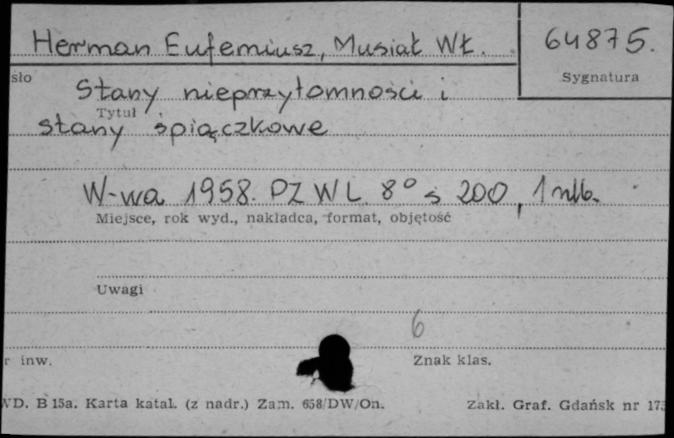 Herman Eufemiusz, Musiał Wł.
64875.
sło
Sygnatura
Stany nieprzytomności i
Tytuł
stany śpiączkowe
W-wa 1958. PZWL. 8° s 200, 1 nlb.
Miejsce, rok wyd., nakładca, format, objętość
Uwagi
6
r inw.
Znak klas.
WD. B 15a. Karta katal. (z nadr.) Zam. 658/DW/On.
Zakł. Graf. Gdańsk nr 173